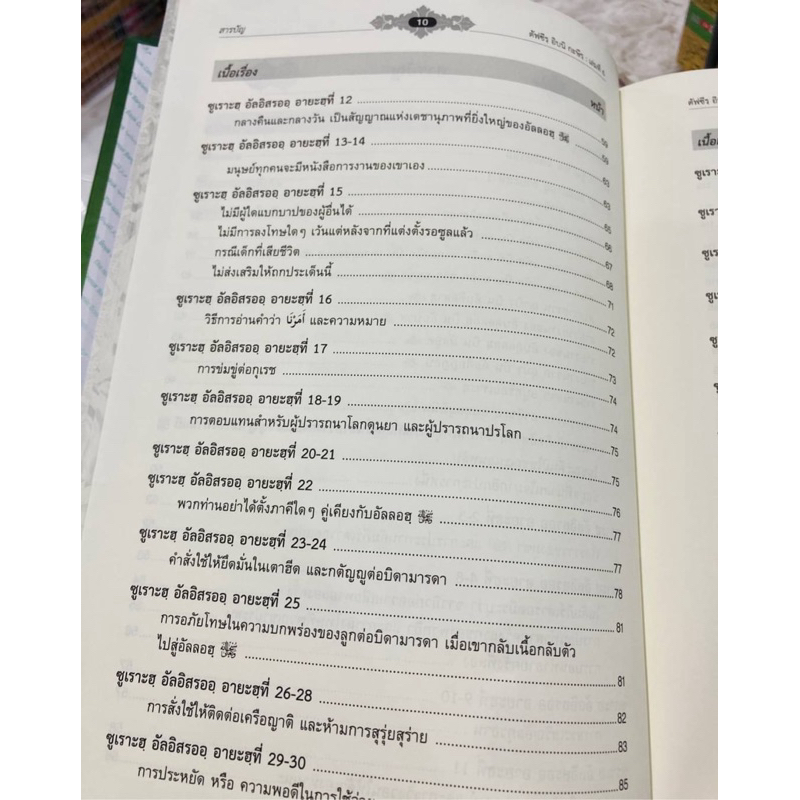 สารบัญ
10
ตัฟซีร อิบนิ กะษีร : เล่มที่
เนื้อเรื่อง หน้า
ซูเราะฮฺ อัลอิสรออฺ อายะฮฺที่ 12 59
กลางคืนและกลางวัน เป็นสัญญาณแห่งเดชานุภาพที่ยิ่งใหญ่ของอัลลอฮฺ ﷻ 59
ซูเราะฮฺ อัลอิสรออฺ อายะฮฺที่ 13-14 63
มนุษย์ทุกคนจะมีหนังสือการงานของเขาเอง 63
ซูเราะฮฺ อัลอิสรออฺ อายะฮฺที่ 15 65
ไม่มีผู้ใดแบกบาปของผู้อื่นได้ 66
ไม่มีการลงโทษใดๆ เว้นแต่หลังจากที่แต่งตั้งรอซูลแล้ว 67
กรณีเด็กที่เสียชีวิต 68
ไม่ส่งเสริมให้ถกประเด็นนี้ 71
ซูเราะฮฺ อัลอิสรออฺ อายะฮฺที่ 16 72
วิธีการอ่านคำว่า أَمَرْنَا และความหมาย 72
ซูเราะฮฺ อัลอิสรออฺ อายะฮฺที่ 17 73
การข่มขู่ต่อกุเรช 74
ซูเราะฮฺ อัลอิสรออฺ อายะฮฺที่ 18-19 74
การตอบแทนสำหรับผู้ปรารถนาโลกดุนยา และผู้ปรารถนาปรโลก 75
ซูเราะฮฺ อัลอิสรออฺ อายะฮฺที่ 20-21 75
ซูเราะฮฺ อัลอิสรออฺ อายะฮฺที่ 22 76
พวกท่านอย่าได้ตั้งภาคีใดๆ คู่เคียงกับอัลลอฮฺ ﷻ 77
ซูเราะฮฺ อัลอิสรออฺ อายะฮฺที่ 23-24 77
คำสั่งใช้ให้ยึดมั่นในเตาฮีด และกตัญญูต่อบิดามารดา 78
ซูเราะฮฺ อัลอิสรออฺ อายะฮฺที่ 25 81
การอภัยโทษในความบกพร่องของลูกต่อบิดามารดา เมื่อเขากลับเนื้อกลับตัว
ไปสู่อัลลอฮฺ ﷻ 81
ซูเราะฮฺ อัลอิสรออฺ อายะฮฺที่ 26-28 82
การสั่งใช้ให้ติดต่อเครือญาติ และห้ามการสุรุ่ยสุร่าย 83
ซูเราะฮฺ อัลอิสรออฺ อายะฮฺที่ 29-30 85
การประหยัด หรือ ความพอดีในการใช้จ่าย
ตัฟซีร อิบนิ กะษีร